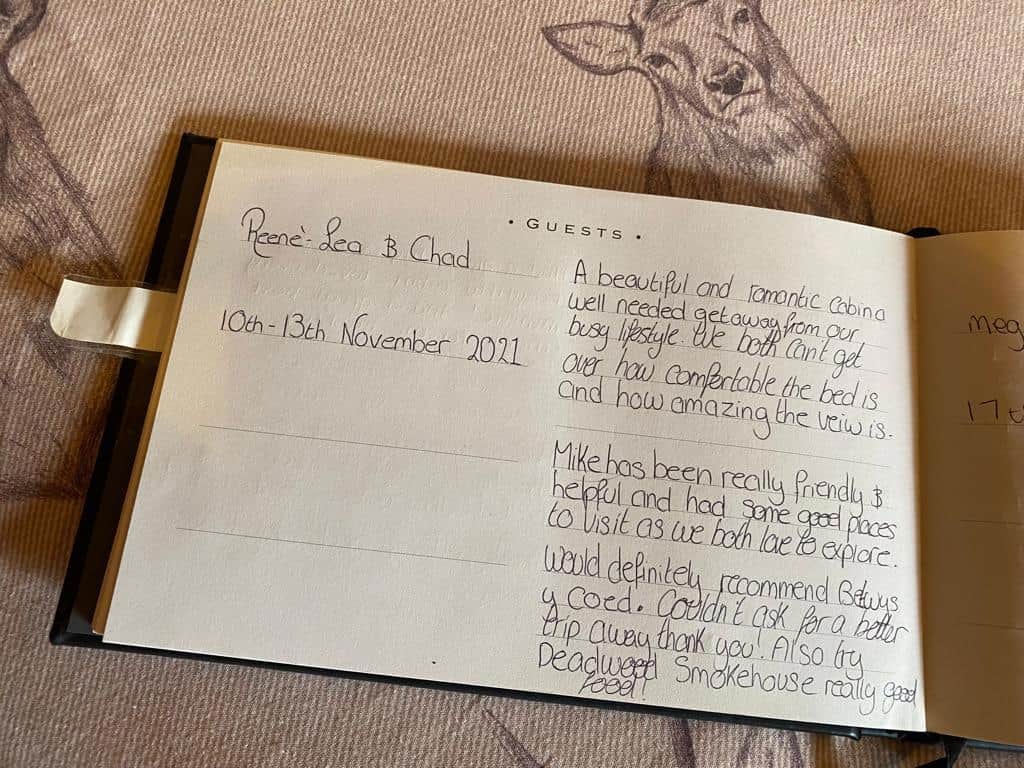 • GUESTS •
Reene'-Lea & Chad
10th-13th November 2021
A beautiful and romantic cabin a
well needed getaway from our
busy lifestyle. We both can't get
over how comfortable the bed is
and how amazing the veiw is.
Mike has been really friendly &
helpful and had some good places
to visit as we both love to explore.
Would definitely recommend Betwys
y coed. Couldn't ask for a better
trip away thank you! Also try
Deadwood Smokehouse really good
food!
meg
17